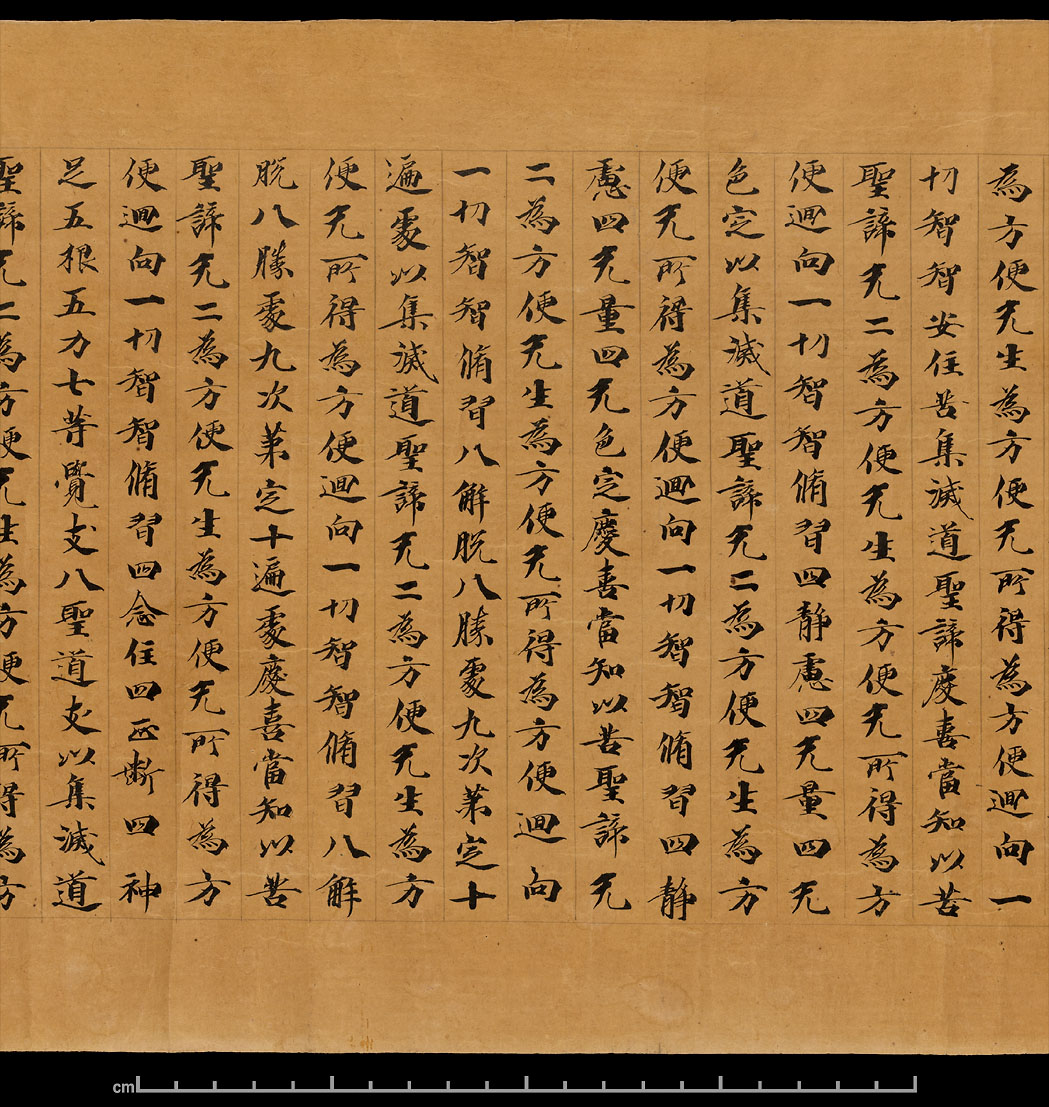 為方便无生為方便无所得為方便迴向一
切智智安住苦集滅道聖諦慶喜當知以苦
聖諦无二為方便无生為方便无所得為方
便迴向一切智智脩習四靜慮四无量四无
色定以集滅道聖諦无二為方便无生為方
便无所得為方便迴向一切智智脩習四靜
慮四无量四无色定慶喜當知以苦聖諦无
二為方便无生為方便无所得為方便迴向
一切智智脩習八解脫八勝處九次苐定十
遍處以集滅道聖諦无二為方便无生為方
便无所得為方便迴向一切智智脩習八解
脫八勝處九次苐定十遍處慶喜當知以苦
聖諦无二為方便无生為方便无所得為方
便迴向一切智智脩習四念住四正斷四神
足五根五力七等覺支八聖道支以集滅道
聖諦无二為方便无生為方便无所得為方
cm